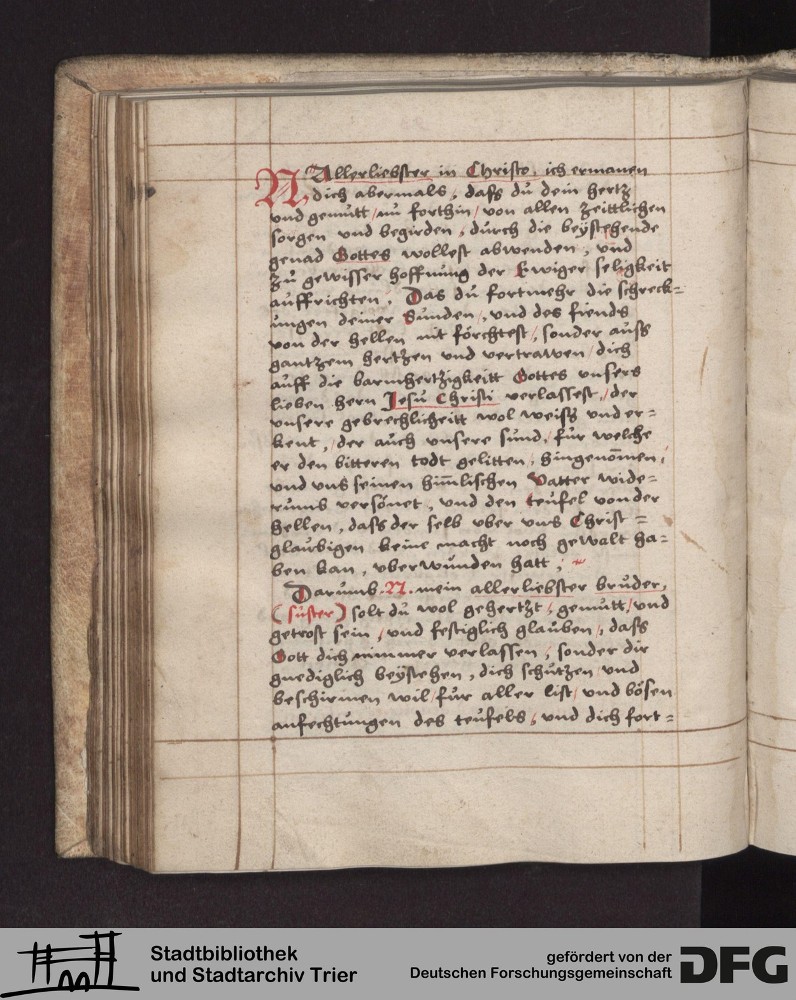 N Allerliebster in Christo, ich ermanen
dich abermals, dass du dein hertz
und gemütt / nu forthin / von allen zeittlichen
sorgen und begirden, durch die beÿstehende
genad Gottes wollest abwenden, und
zu gewisser hoffnung der Ewiger seligkeit
auffrichten. Das du fortmehr die schreck=
ungen deiner Sunden, und des fiends
von der hellen nit förchtest, sonder auss
gantzem hertzen und vertrawen / dich
auff die barmhertzigkeitt Gottes unsers
lieben hern Jesu Christi verlassest, der
unsere gebrechlicheitt wol weist und er=
kent, der auch unsere sund, fur welche
er den bitteren todt gelitten, hingenom̄en,
und uns seinen him̄lischen Vatter wide=
rumb versönet, und den teufel von der
hellen, dass der selb uber uns Christ=
glaubigen keine macht noch gewalt ha=
ben kan, uberwunden hatt;
Darumb .N. mein allerliebster bruder,
(suster) solt du wol gehertzt, gemutt, und
getrost sein, und festiglich glauben, dass
Gott dich nimmer verlassen, sonder dir
gnediglich beÿstehen, dich schutzen und
beschirmen wil / fur aller list / und bösen
anfechtungen des teufels, und dich fort=
Stadtbibliothek
und Stadtarchiv Trier
gefördert von der
Deutschen Forschungsgemeinschaft
DFG